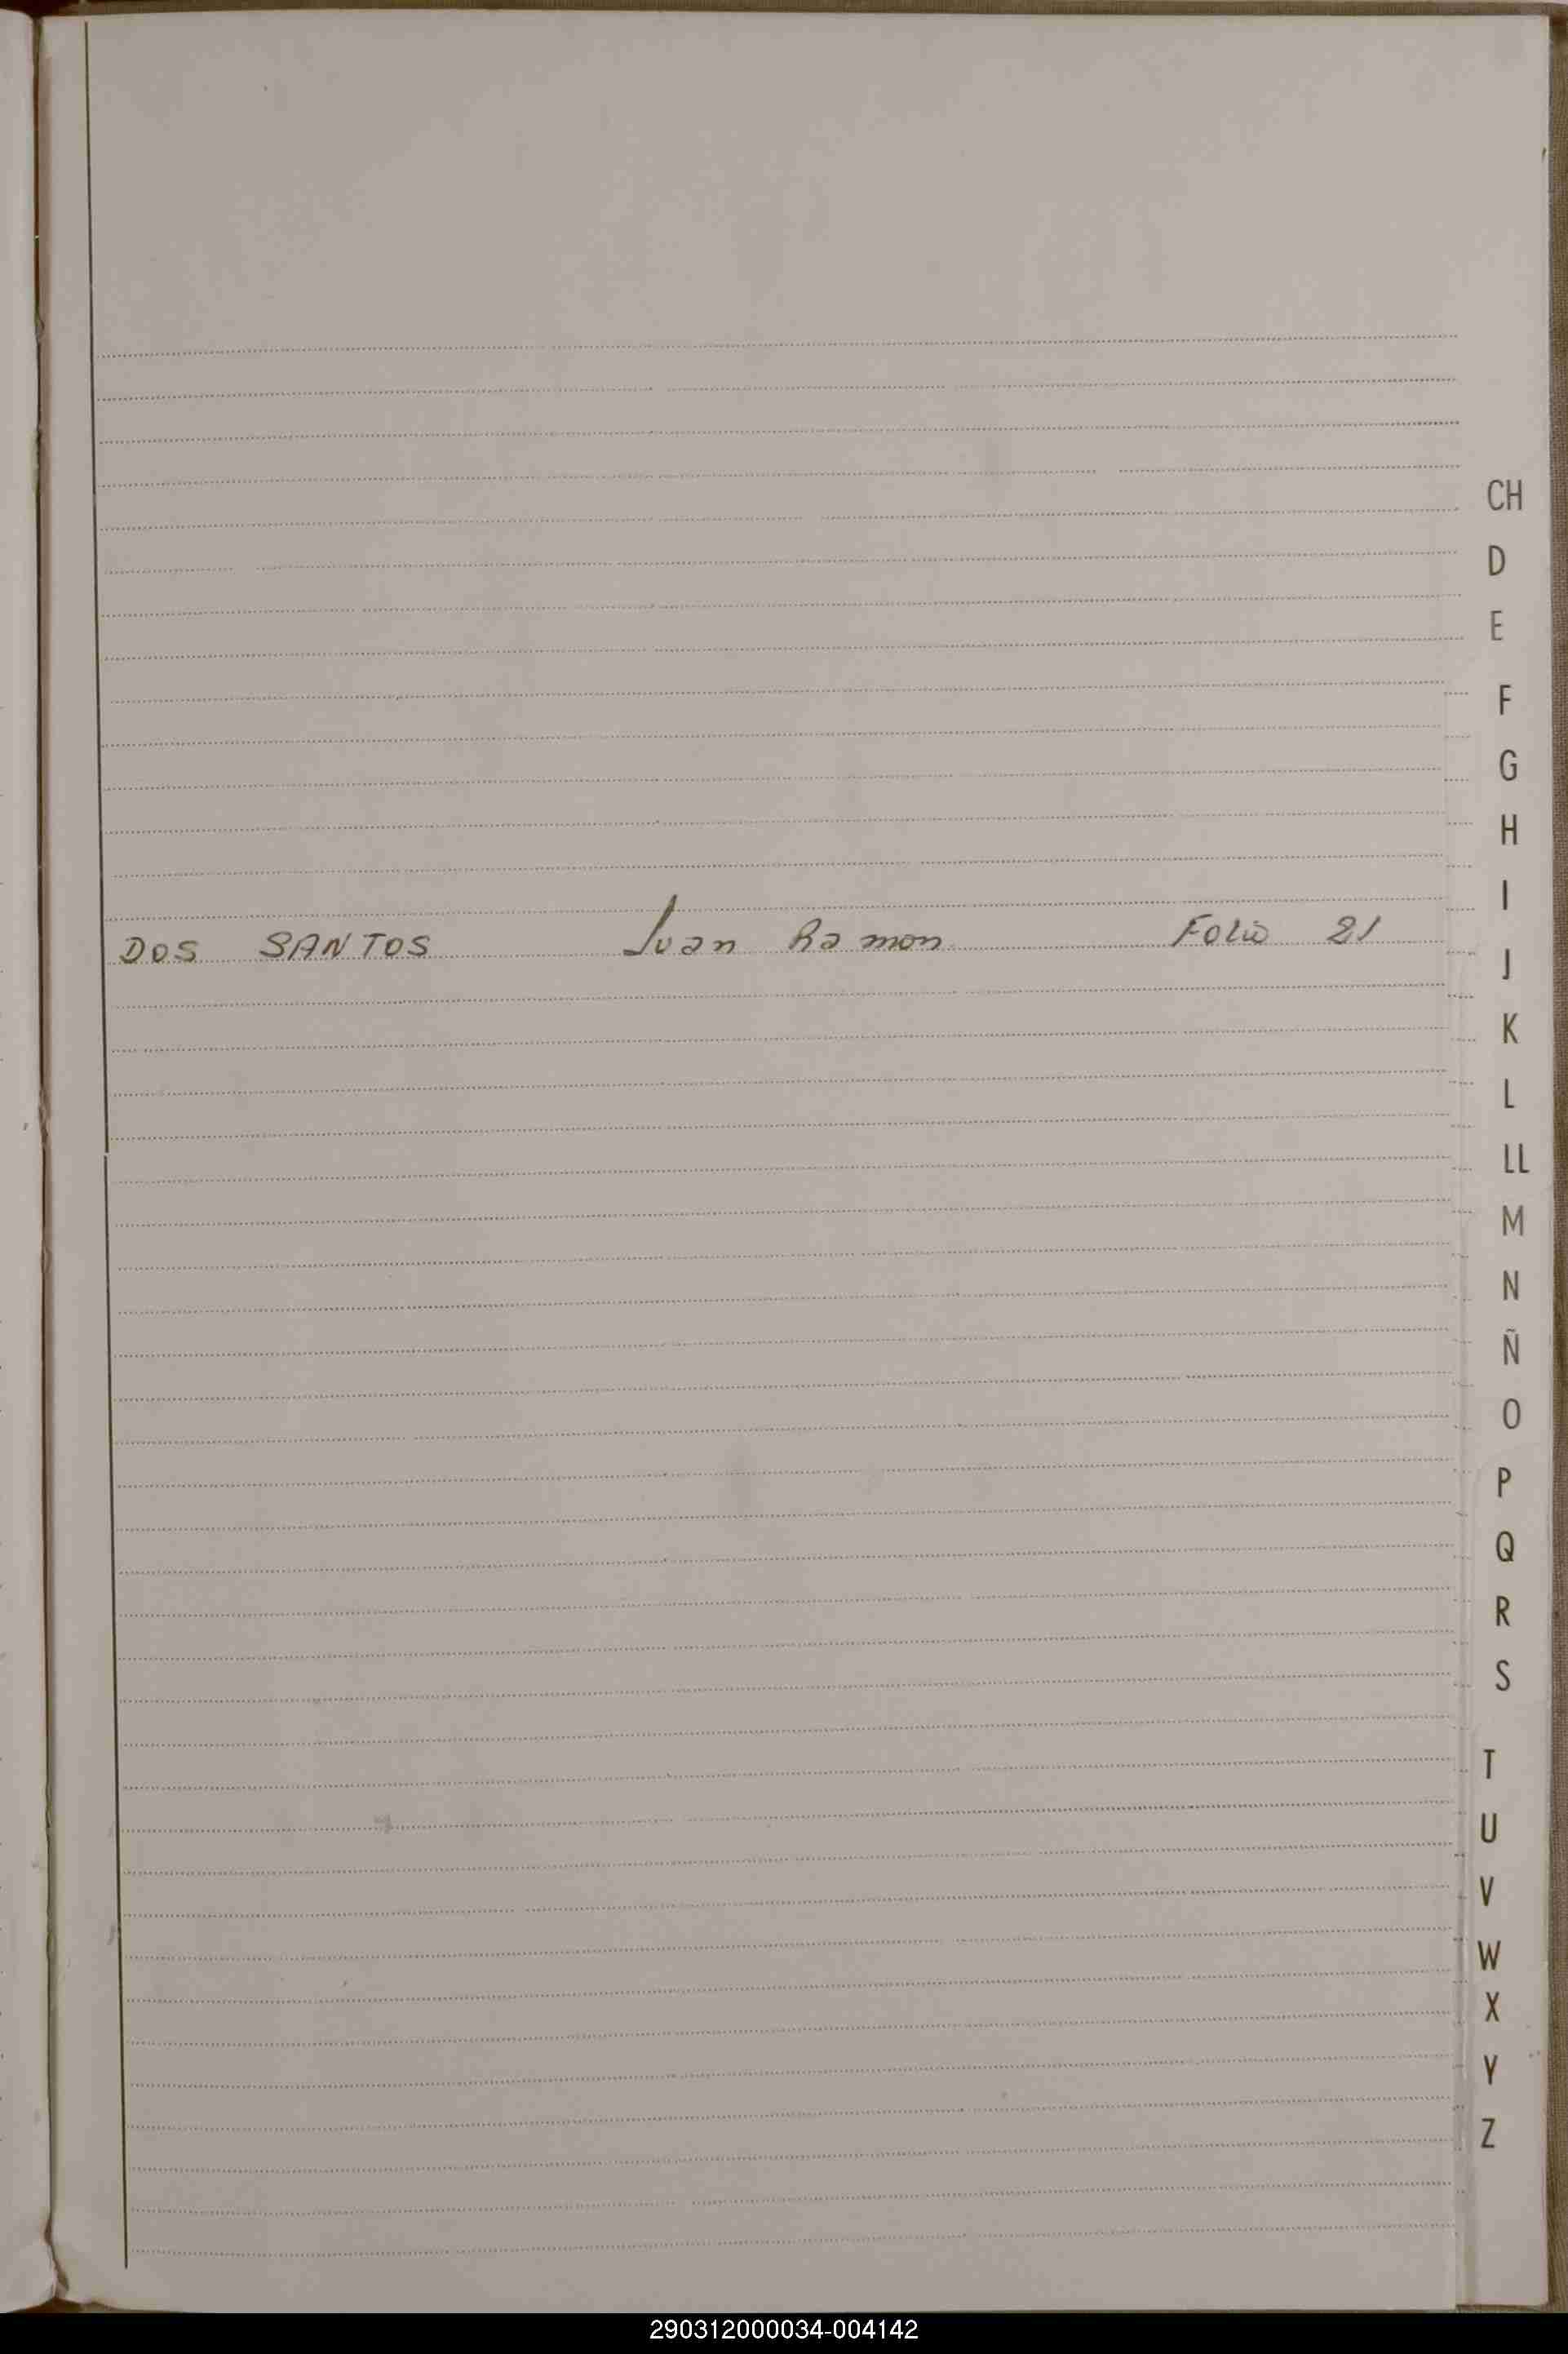 CH
D
E
F
G
H
I
DOS SANTOS Juan Ramon Folio 21
J
K
L
LL
M
N
Ñ
O
P
Q
R
S
T
U
V
W
X
Y
Z
290312000034-004142